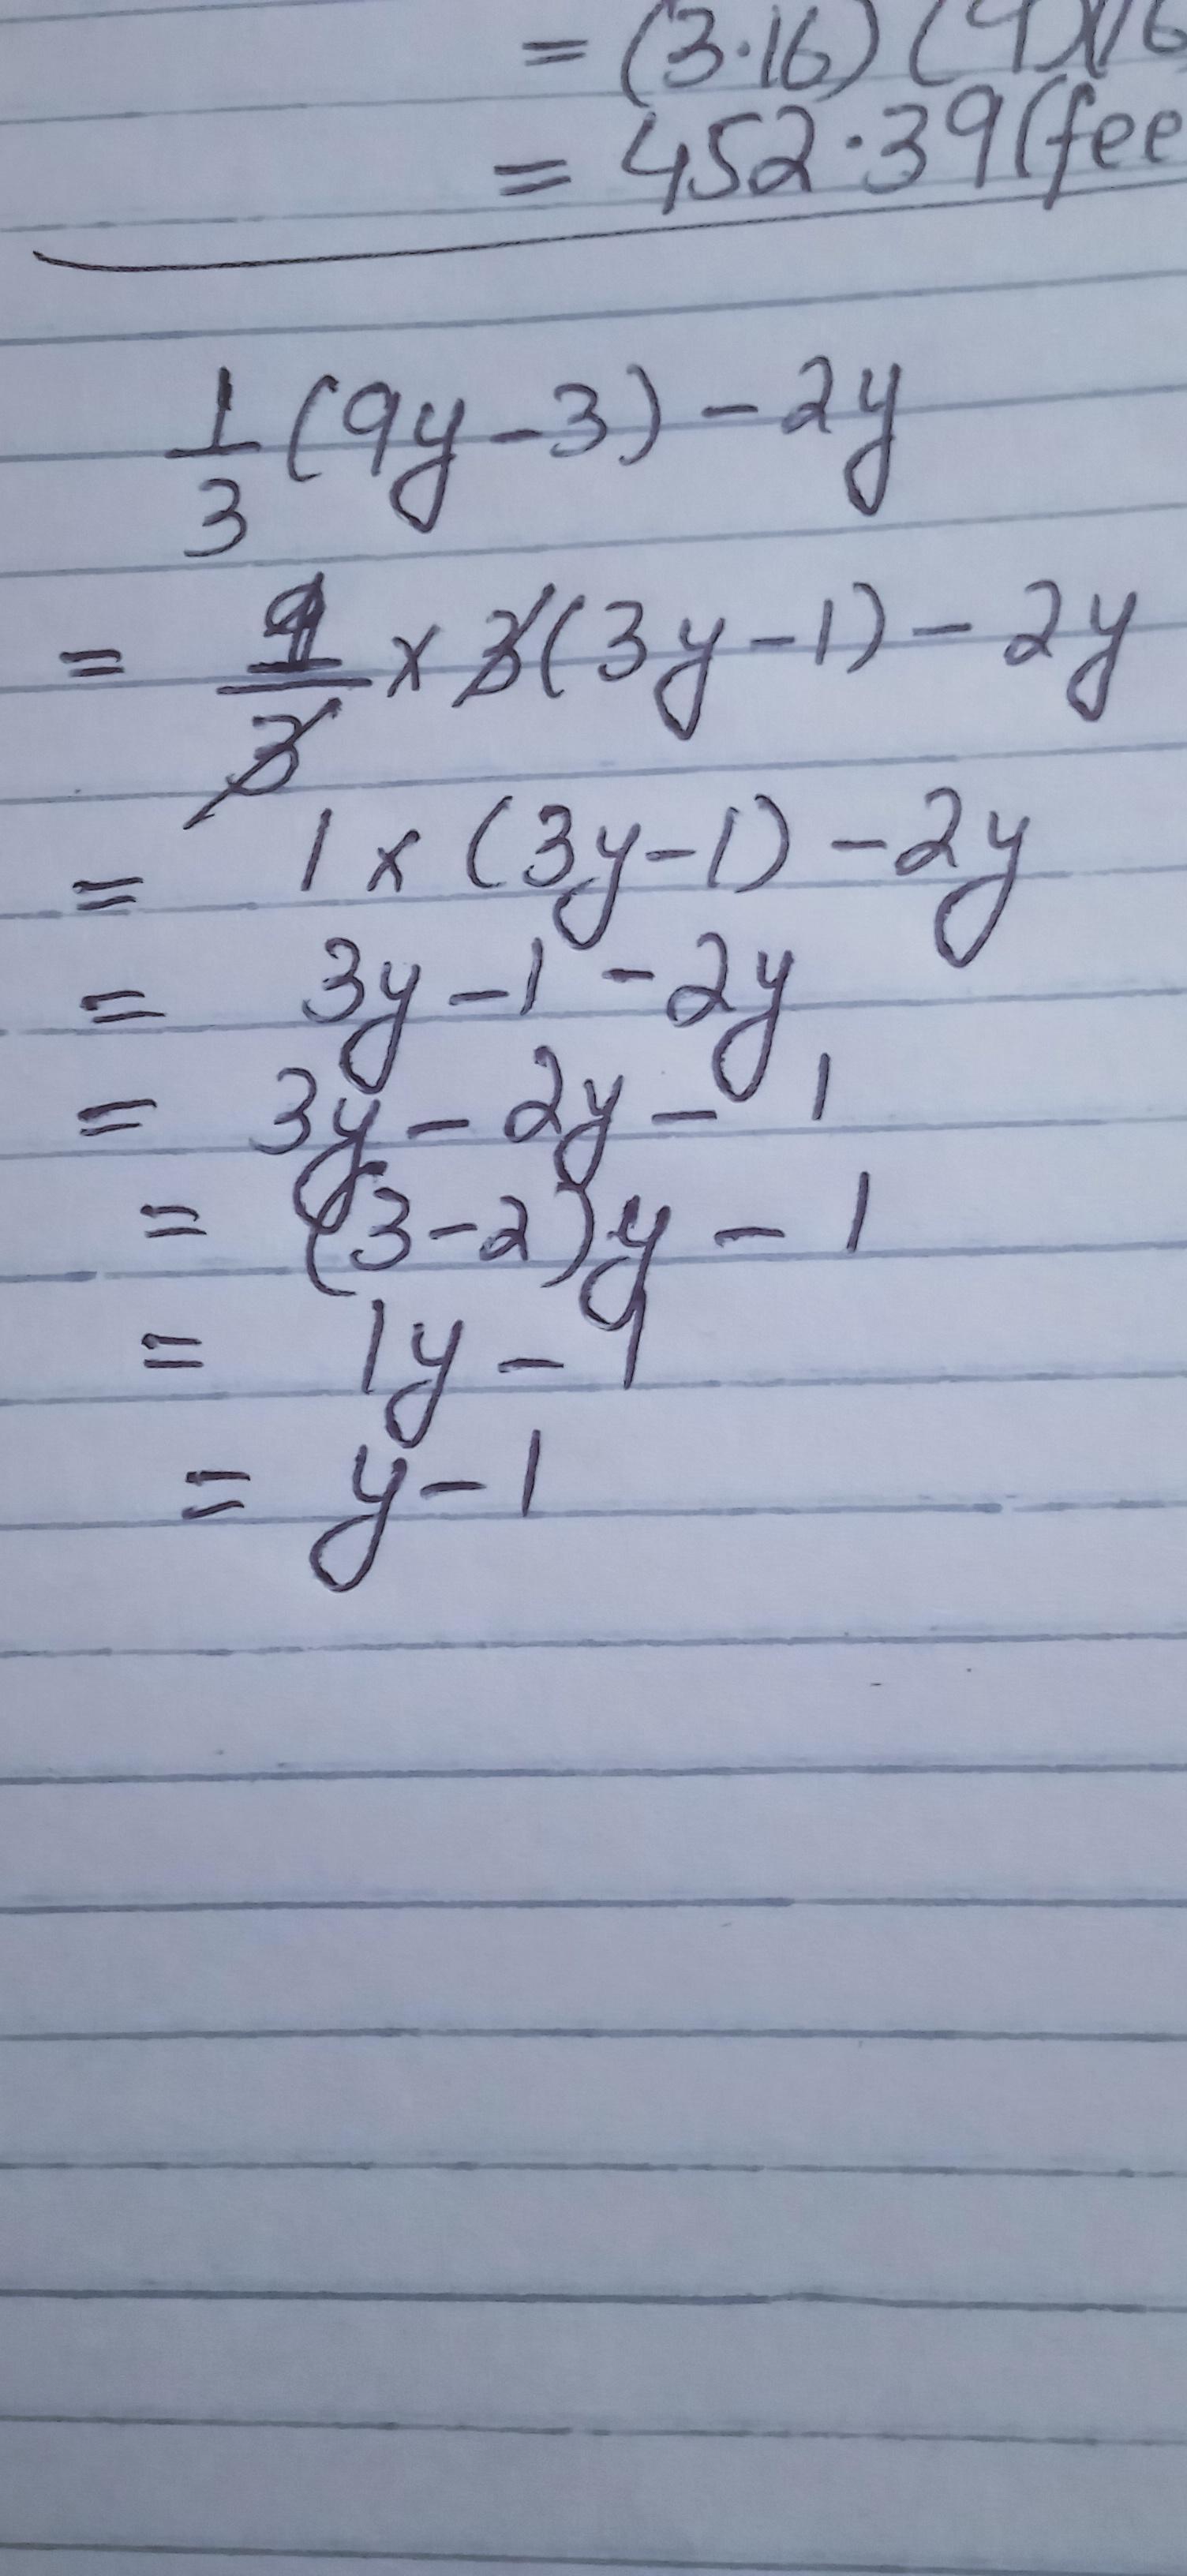 = (3.16) (4)(16
= 452.39 (fee
1/3 (9y - 3) - 2y
= 1/3 × 3(3y - 1) - 2y
= 1 × (3y - 1) - 2y
= 3y - 1 - 2y
= 3y - 2y - 1
= (3 - 2)y - 1
= 1y - 1
= y - 1